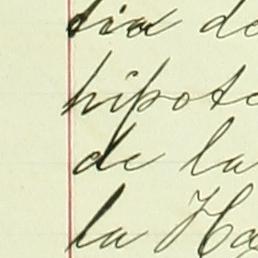 tia de
hipote
de la
la Ha